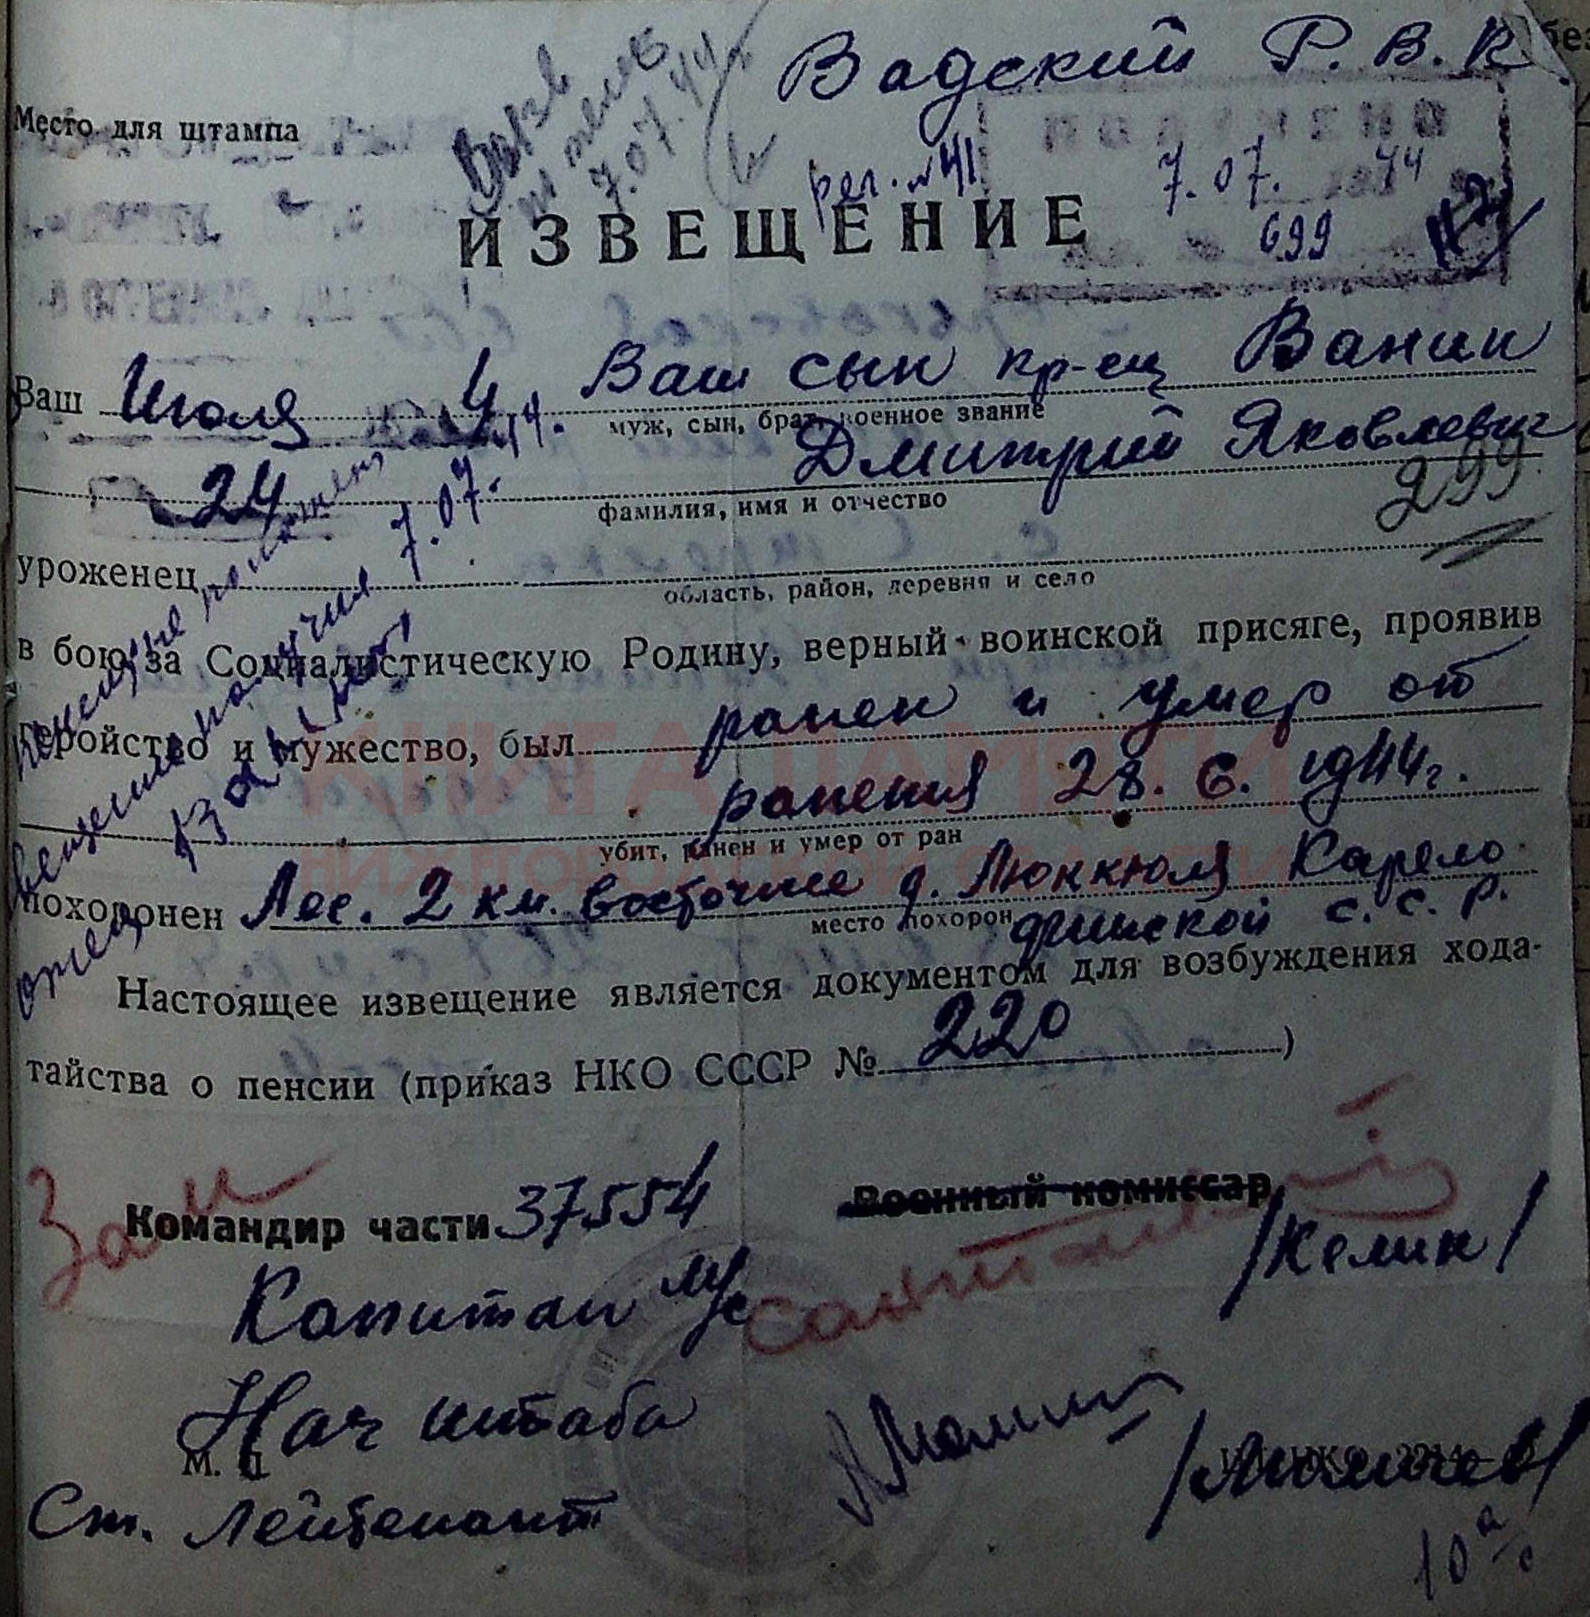 Вадский Р. В. К.
Место для штампа
Вызв
7.07.44
рег. №41
7.07. 44
699
ИЗВЕЩЕНИЕ
Ваш Июля 4 Ваш сын кр-ец Ванин
муж, сын, брат, военное звание
24 Дмитрий Яковлевич
фамилия, имя и отчество
299
уроженец
область, район, деревня и село
в бою за Социалистическую Родину, верный воинской присяге, проявив
геройство и мужество, был ранен и умер от
ранения 28. 6. 1944г.
убит, ранен и умер от ран
похоронен Лес. 2 км. восточнее д. Люнкюля Карело
место похорон
финской С. С. Р.
Настоящее извещение является документом для возбуждения хода-
тайства о пенсии (приказ НКО СССР № 220)
извещение получил 7.07.44.
отец Ванин
КНИГА ПАМЯТИ
НИЖЕГОРОДСКОЙ ОБЛАСТИ
Зам
Командир части 37554 Военный комиссар
Капитан /Келин/
Нач штаба
М. П.
Ст. Лейтенант
10